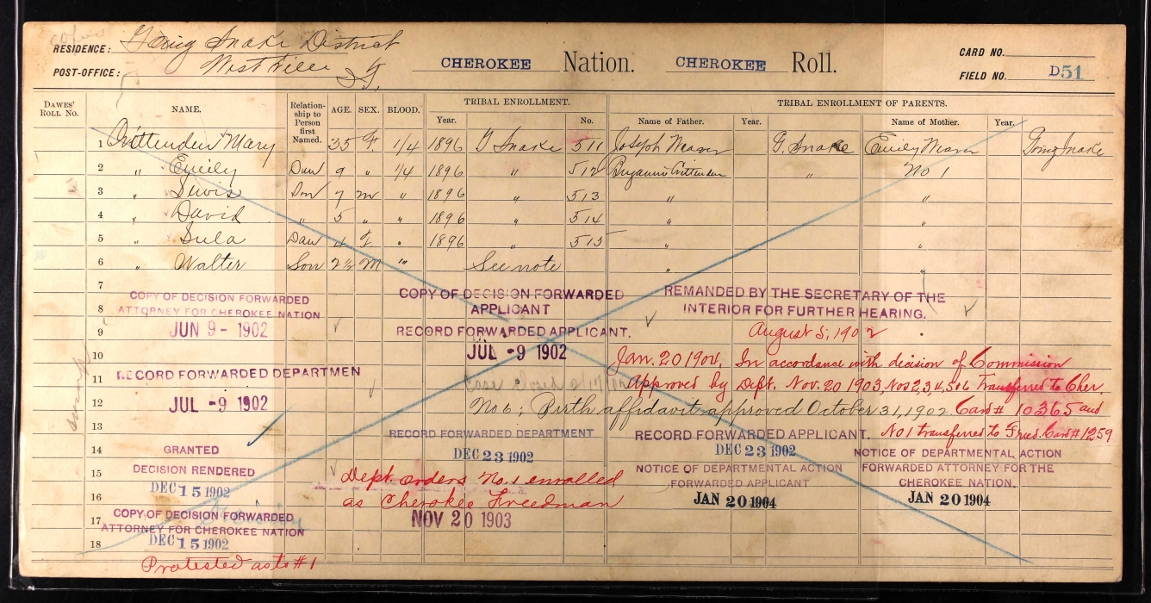 RESIDENCE: Going Snake District
POST-OFFICE: Westville I.T.
CHEROKEE Nation. CHEROKEE Roll.
CARD NO.
FIELD NO. D51
DAWES' ROLL NO. NAME. Relationship to Person first Named. AGE. SEX. BLOOD. TRIBAL ENROLLMENT. Year. No. TRIBAL ENROLLMENT OF PARENTS. Name of Father. Year. Name of Mother. Year.
1 Crittenden Mary 35 F 1/4 1896 G Snake 511 Joseph G. Snake Emily Going Snake
2 " Emily Dau 9 " 1/4 1896 " 512 Benjamin Crittenden " No 1
3 " Son 7 m " 1896 " 513 " "
4 " David " 5 " " 1896 " 514 " "
5 " Sula Dau 4 f " 1896 " 515 " "
6 " Walter Son 2½ M " See note " "
7
8
9
10
11
12
13
14
15
16
17
18
COPY OF DECISION FORWARDED
ATTORNEY FOR CHEROKEE NATION
JUN 9 - 1902
COPY OF DECISION FORWARDED
APPLICANT
RECORD FORWARDED APPLICANT.
JUL -9 1902
REMANDED BY THE SECRETARY OF THE
INTERIOR FOR FURTHER HEARING.
August 5, 1902
RECORD FORWARDED DEPARTMEN
JUL -9 1902
Jan. 20 1904. In accordance with decision of Commission
Approved by Dept. Nov. 20 1903, Nos 2,3,4,5 & 6 Transferred to Cher.
Card # 10365 and
No 1 transferred to Freed. Card #1259
No 6; Birth affidavit approved October 31, 1902
GRANTED
DECISION RENDERED
DEC 15 1902
COPY OF DECISION FORWARDED
ATTORNEY FOR CHEROKEE NATION
DEC 15 1902
Protested as to #1
RECORD FORWARDED DEPARTMENT
DEC 23 1902
Dept. orders No. 1 enrolled
as Cherokee Freedman
NOV 20 1903
RECORD FORWARDED APPLICANT.
DEC 23 1902
NOTICE OF DEPARTMENTAL ACTION
FORWARDED APPLICANT
JAN 20 1904
NOTICE OF DEPARTMENTAL ACTION
FORWARDED ATTORNEY FOR THE
CHEROKEE NATION.
JAN 20 1904